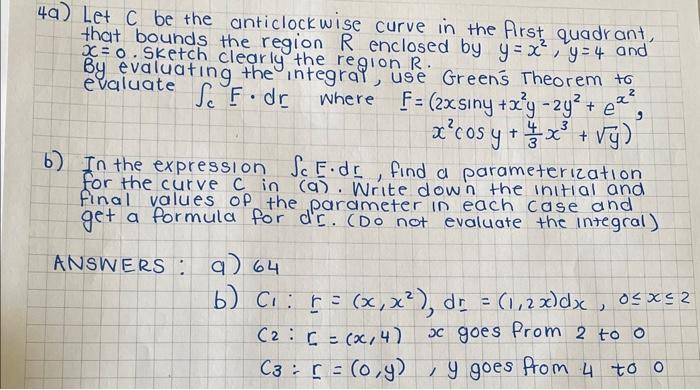 4a) Let C be the anticlockwise curve in the first quadrant,
that bounds the region R enclosed by y = x², y = 4 and
x = 0. Sketch clearly the region R.
By evaluating the integral, use Green's Theorem to
evaluate ∫c F · dr where F = (2x sin y + x²y - 2y² + e^x²,
x² cos y + 4/3 x³ + √y)
b) In the expression ∫c F · dr, find a parameterization
for the curve C in (a). Write down the initial and
final values of the parameter in each case and
get a formula for dr. (Do not evaluate the integral)
ANSWERS : a) 64
b) C1 : r = (x, x²), dr = (1, 2x)dx , 0 ≤ x ≤ 2
C2 : r = (x, 4) x goes from 2 to 0
C3 : r = (0, y) , y goes from 4 to 0